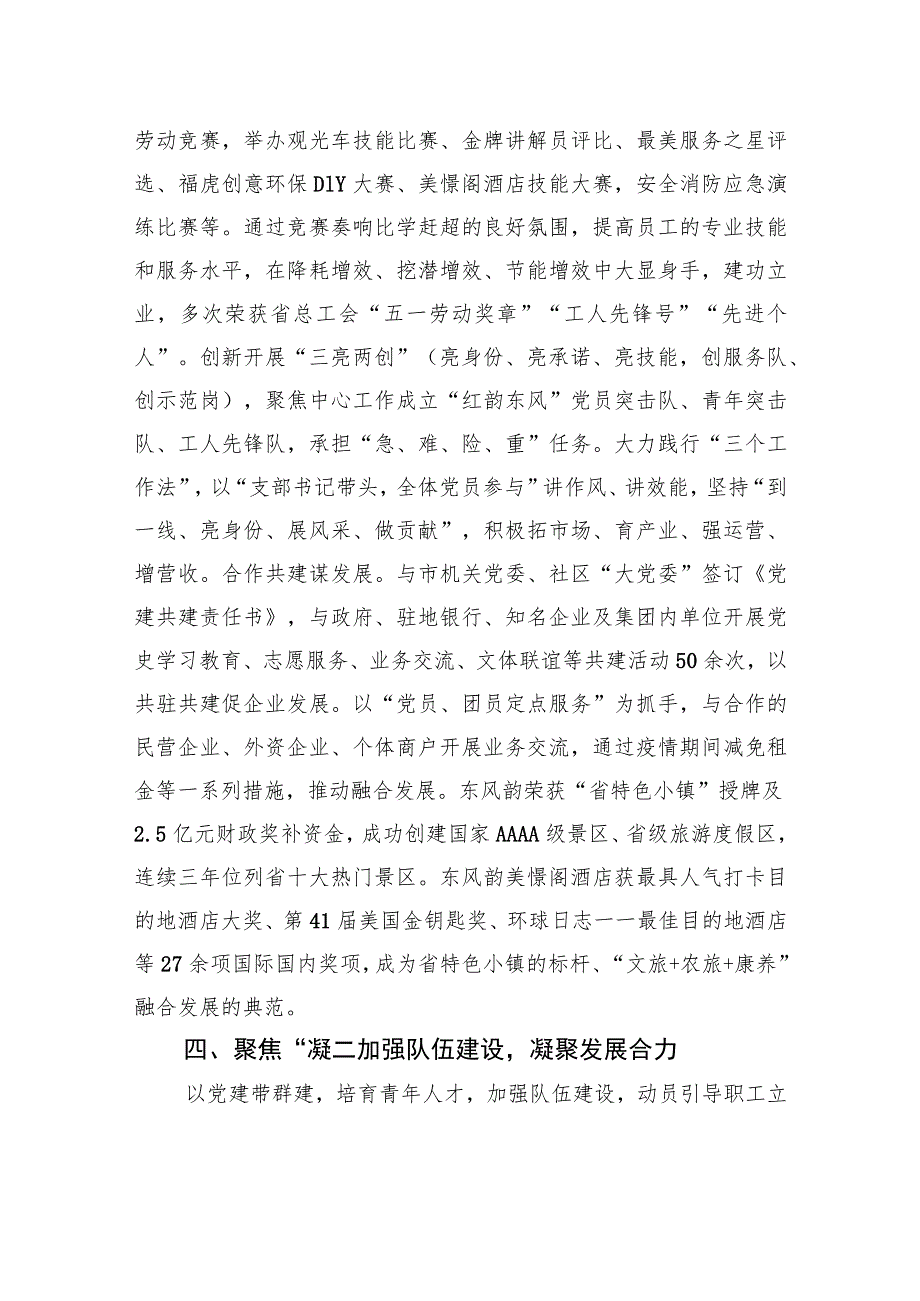 劳动竞赛，举办观光车技能比赛、金牌讲解员评比、最美服务之星评
选、福虎创意环保DlY大赛、美憬阁酒店技能大赛，安全消防应急演
练比赛等。通过竞赛奏响比学赶超的良好氛围，提高员工的专业技能
和服务水平，在降耗增效、挖潜增效、节能增效中大显身手，建功立
业，多次荣获省总工会“五一劳动奖章”“工人先锋号”“先进个
人”。创新开展“三亮两创”（亮身份、亮承诺、亮技能，创服务队、
创示范岗），聚焦中心工作成立“红韵东风”党员突击队、青年突击
队、工人先锋队，承担“急、难、险、重”任务。大力践行“三个工
作法”，以“支部书记带头，全体党员参与”讲作风、讲效能，坚持“到
一线、亮身份、展风采、做贡献”，积极拓市场、育产业、强运营、
增营收。合作共建谋发展。与市机关党委、社区“大党委”签订《党
建共建责任书》，与政府、驻地银行、知名企业及集团内单位开展党
史学习教育、志愿服务、业务交流、文体联谊等共建活动50余次，以
共驻共建促企业发展。以“党员、团员定点服务”为抓手，与合作的
民营企业、外资企业、个体商户开展业务交流，通过疫情期间减免租
金等一系列措施，推动融合发展。东风韵荣获“省特色小镇”授牌及
2.5亿元财政奖补资金，成功创建国家AAAA级景区、省级旅游度假区，
连续三年位列省十大热门景区。东风韵美憬阁酒店获最具人气打卡目
的地酒店大奖、第41届美国金钥匙奖、环球日志一一最佳目的地酒店
等27余项国际国内奖项，成为省特色小镇的标杆、“文旅+农旅+康养”
融合发展的典范。
四、聚焦“凝二加强队伍建设，凝聚发展合力
以党建带群建，培育青年人才，加强队伍建设，动员引导职工立